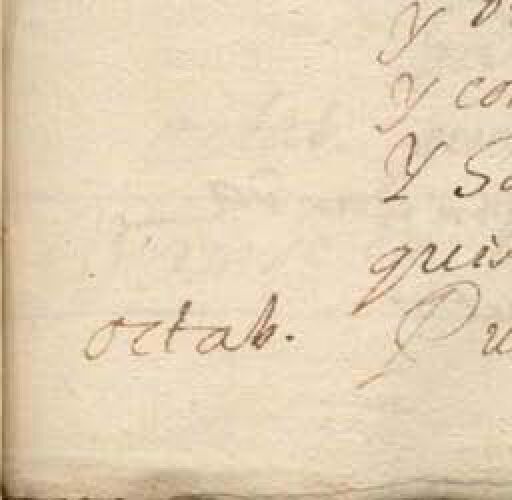 y
y co
Y Sa
quis
octab. Pu